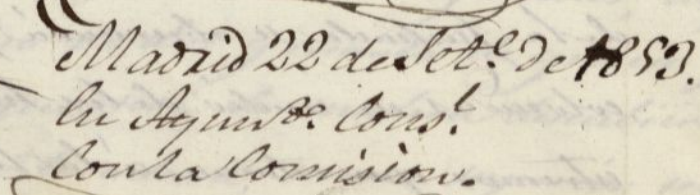 Madrid 22 de Set.e de 1853.
En Ayun.to Cons.l
Con la Comision.